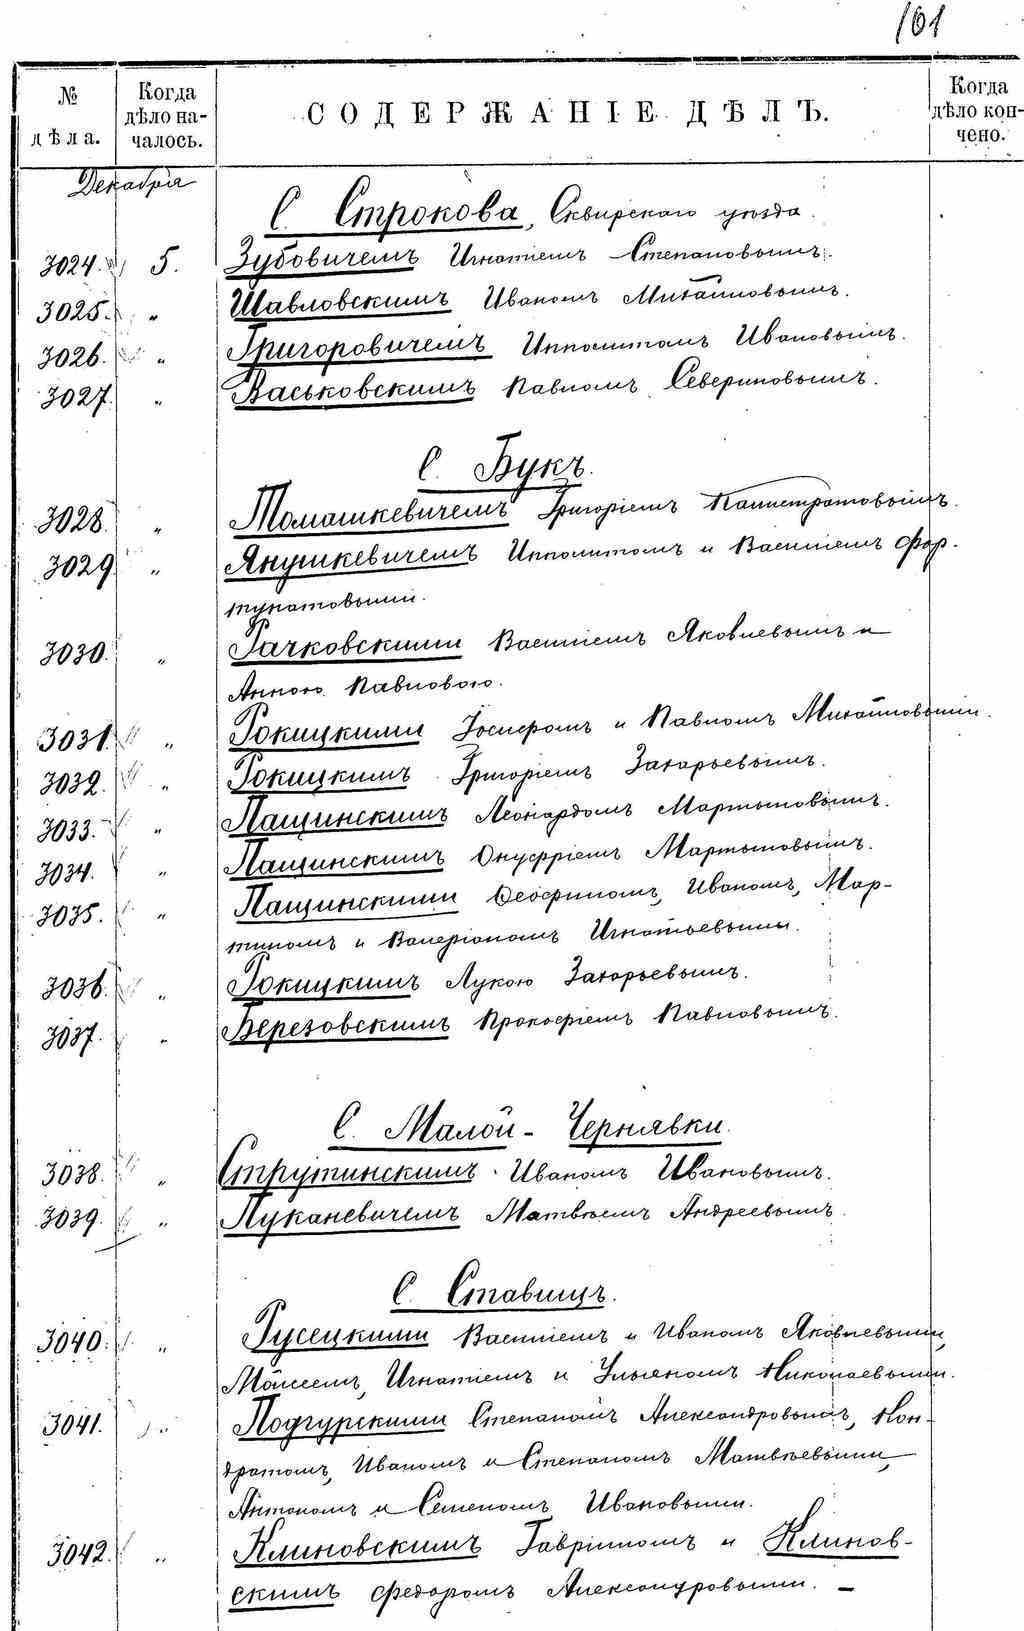 101
№ дѣла. Когда дѣло началось. СОДЕРЖАНІЕ ДѢЛЪ. Когда дѣло кончено.
Декабря
С. Строкова, Сквирскаго уѣзда.
3024. 5. Зубовичемъ Игнатіемъ Степановымъ.
3025. „ Шавловскимъ Иваномъ Михайловымъ.
3026. „ Григоровичемъ Ипполитомъ Ивановымъ.
3027. „ Васьковскимъ Павломъ Севериновымъ.
С. Букъ.
3028. „ Томашкевичемъ Григоріемъ Калистратовымъ.
3029. „ Янушкевичемъ Ипполитомъ и Василіемъ Фор-
тунатовыми.
3030. „ Рачковскими Василіемъ Яковлевымъ и
Анною Павловою.
3031. „ Рокицкими Іосифомъ и Павломъ Михайловыми.
3032. „ Рокицкимъ Григоріемъ Захарьевымъ.
3033. „ Пащинскимъ Леонардомъ Мартыновымъ.
3034. „ Пащинскимъ Онуфріемъ Мартыновымъ.
3035. „ Пащинскими Ѳеофиломъ, Иваномъ, Мар-
тиномъ и Валеріаномъ Игнатьевыми.
3036. „ Рокицкимъ Лукою Захарьевымъ.
3037. „ Березовскимъ Прокофіемъ Павловымъ.
С. Малой-Чернявки.
3038. „ Струтинскимъ Иваномъ Ивановымъ.
3039. „ Луканевичемъ Матвѣемъ Андреевымъ.
С. Ставищъ.
3040. „ Русецкими Василіемъ и Иваномъ Яковлевыми,
Моисеемъ, Игнатіемъ и Ульяномъ Николаевыми.
3041. „ Подгурскими Степаномъ Александровымъ, Кон-
дратомъ, Иваномъ и Степаномъ Матвѣевыми,
Антономъ и Семеномъ Ивановыми.
3042. „ Климовскимъ Гавріиломъ и Климов-
скимъ Федоромъ Александровыми. –